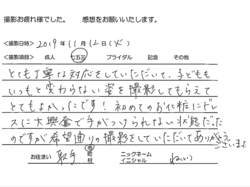 撮影お疲れ様でした。 感想をお願いいたします。
【撮影日時】 2019年11月12日(火)
【撮影内容】 成人 七五三 ブライダル 記念 その他
とても丁寧な対応をしていただいて、子どもも
いつもと変わらない姿を撮影してもらえて
とてもよかったです！初めてのお化粧にドレ
スに大興奮で手がつけられない状態だった
のですが希望通りの撮影をしていただいてありがとう
ございます。
お住まい 取手 市 町 村 ニックネーム イニシャル